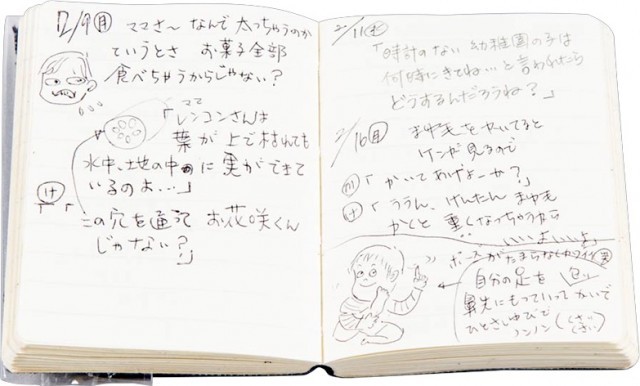 12/9(月) ママさ〜 なんで 太っちゃうのか
ていうとさ お菓子全部
食べちゃうからじゃない?
ママ
「レンコンさんは
葉が上で枯れても
水中、土地の中に 実ができて
いるのよ…」
(け)
「この穴を通って お花咲くん
じゃない?」
2/11(土)
「時計のない 幼稚園の子は
何時にきてね…と言われたら
どうするんだろうね?」
2/16(月) まゆ毛をかいてると
ケンが見るので
「かいてあげよーか?」
(け)「ううん、けんたん まゆ毛
かくと 重くなっちゃうから
いいよいいよ」
ポーズがたまらなくカワイイ
自分の足を
鼻先にもっていって かいで
ひとさしゆびで
ノンノン (くさいくさい)